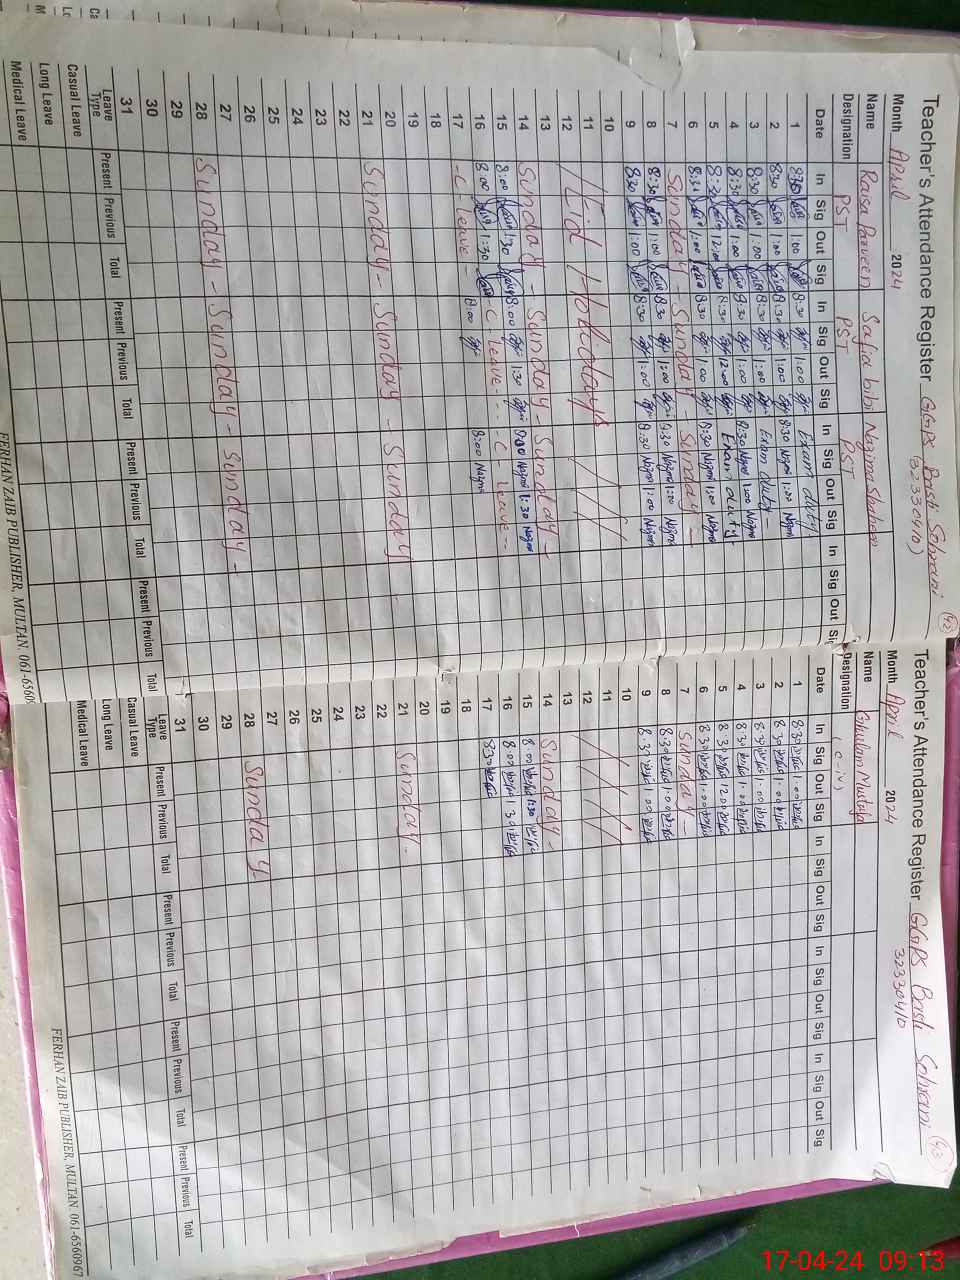 Teacher's Attendance Register GGPS Basti Sohrani 42
Month April 2024 (32330410)
Name Raisa Parveen Safia bibi Nazma Shaheen
Designation PST PST PST
Date In Sig Out Sig In Sig Out Sig In Sig Out Sig In Sig Out Sig
1 8:30 1:00 8:30 1:00 Exam duty
2 8:30 1:00 8:30 1:00 8:30 Nazma 1:00 Nazma
3 8:30 1:00 8:30 1:00 Exam duty
4 8:30 1:00 8:30 1:00 8:30 Nazma 1:00 Nazma
5 8:30 12:00 8:30 12:00 Exam duty
6 8:30 1:00 8:30 1:00 8:30 Nazma 1:00 Nazma
7 Sunday - Sunday - Sunday -
8 8:30 1:00 8:30 1:00 8:30 Nazma 1:00 Nazma
9 8:30 1:00 8:30 1:00 8:30 Nazma 1:00 Nazma
10
11 Eid Holidays
12
13
14 Sunday - Sunday - Sunday -
15 8:00 1:30 8:00 1:30 8:00 Nazma 1:30 Nazma
16 8:00 1:30 - C - leave - - - C - leave - -
17 - C - leave 8:00 8:00 Nazma
18
19
20
21 Sunday - Sunday - Sunday
22
23
24
25
26
27
28 Sunday - Sunday - Sunday -
29
30
31
Leave Type Present Previous Total Present Previous Total Present Previous Total Present Previous Total
Casual Leave
Long Leave
Medical Leave
FERHAN ZAIB PUBLISHER, MULTAN. 061-6560
Teacher's Attendance Register GGPS Basti Sohrani 43
Month April 2024 32330410
Name Ghulam Mustafa
Designation (C-iv)
Date In Sig Out Sig In Sig Out Sig In Sig Out Sig In Sig Out Sig
1 8:30 1:00
2 8:30 1:00
3 8:30 1:00
4 8:30 1:00
5 8:30 12:00
6 8:30 1:00
7 Sunday
8 8:30 1:00
9 8:30 1:00
10
11
12
13
14 Sunday -
15 8:00 1:30
16 8:00 1:30
17 8:30
18
19
20
21 Sunday -
22
23
24
25
26
27
28 Sunday
29
30
31
Leave Type Present Previous Total Present Previous Total Present Previous Total Present Previous Total
Casual Leave
Long Leave
Medical Leave
FERHAN ZAIB PUBLISHER, MULTAN. 061-6560967
17-04-24 09:13